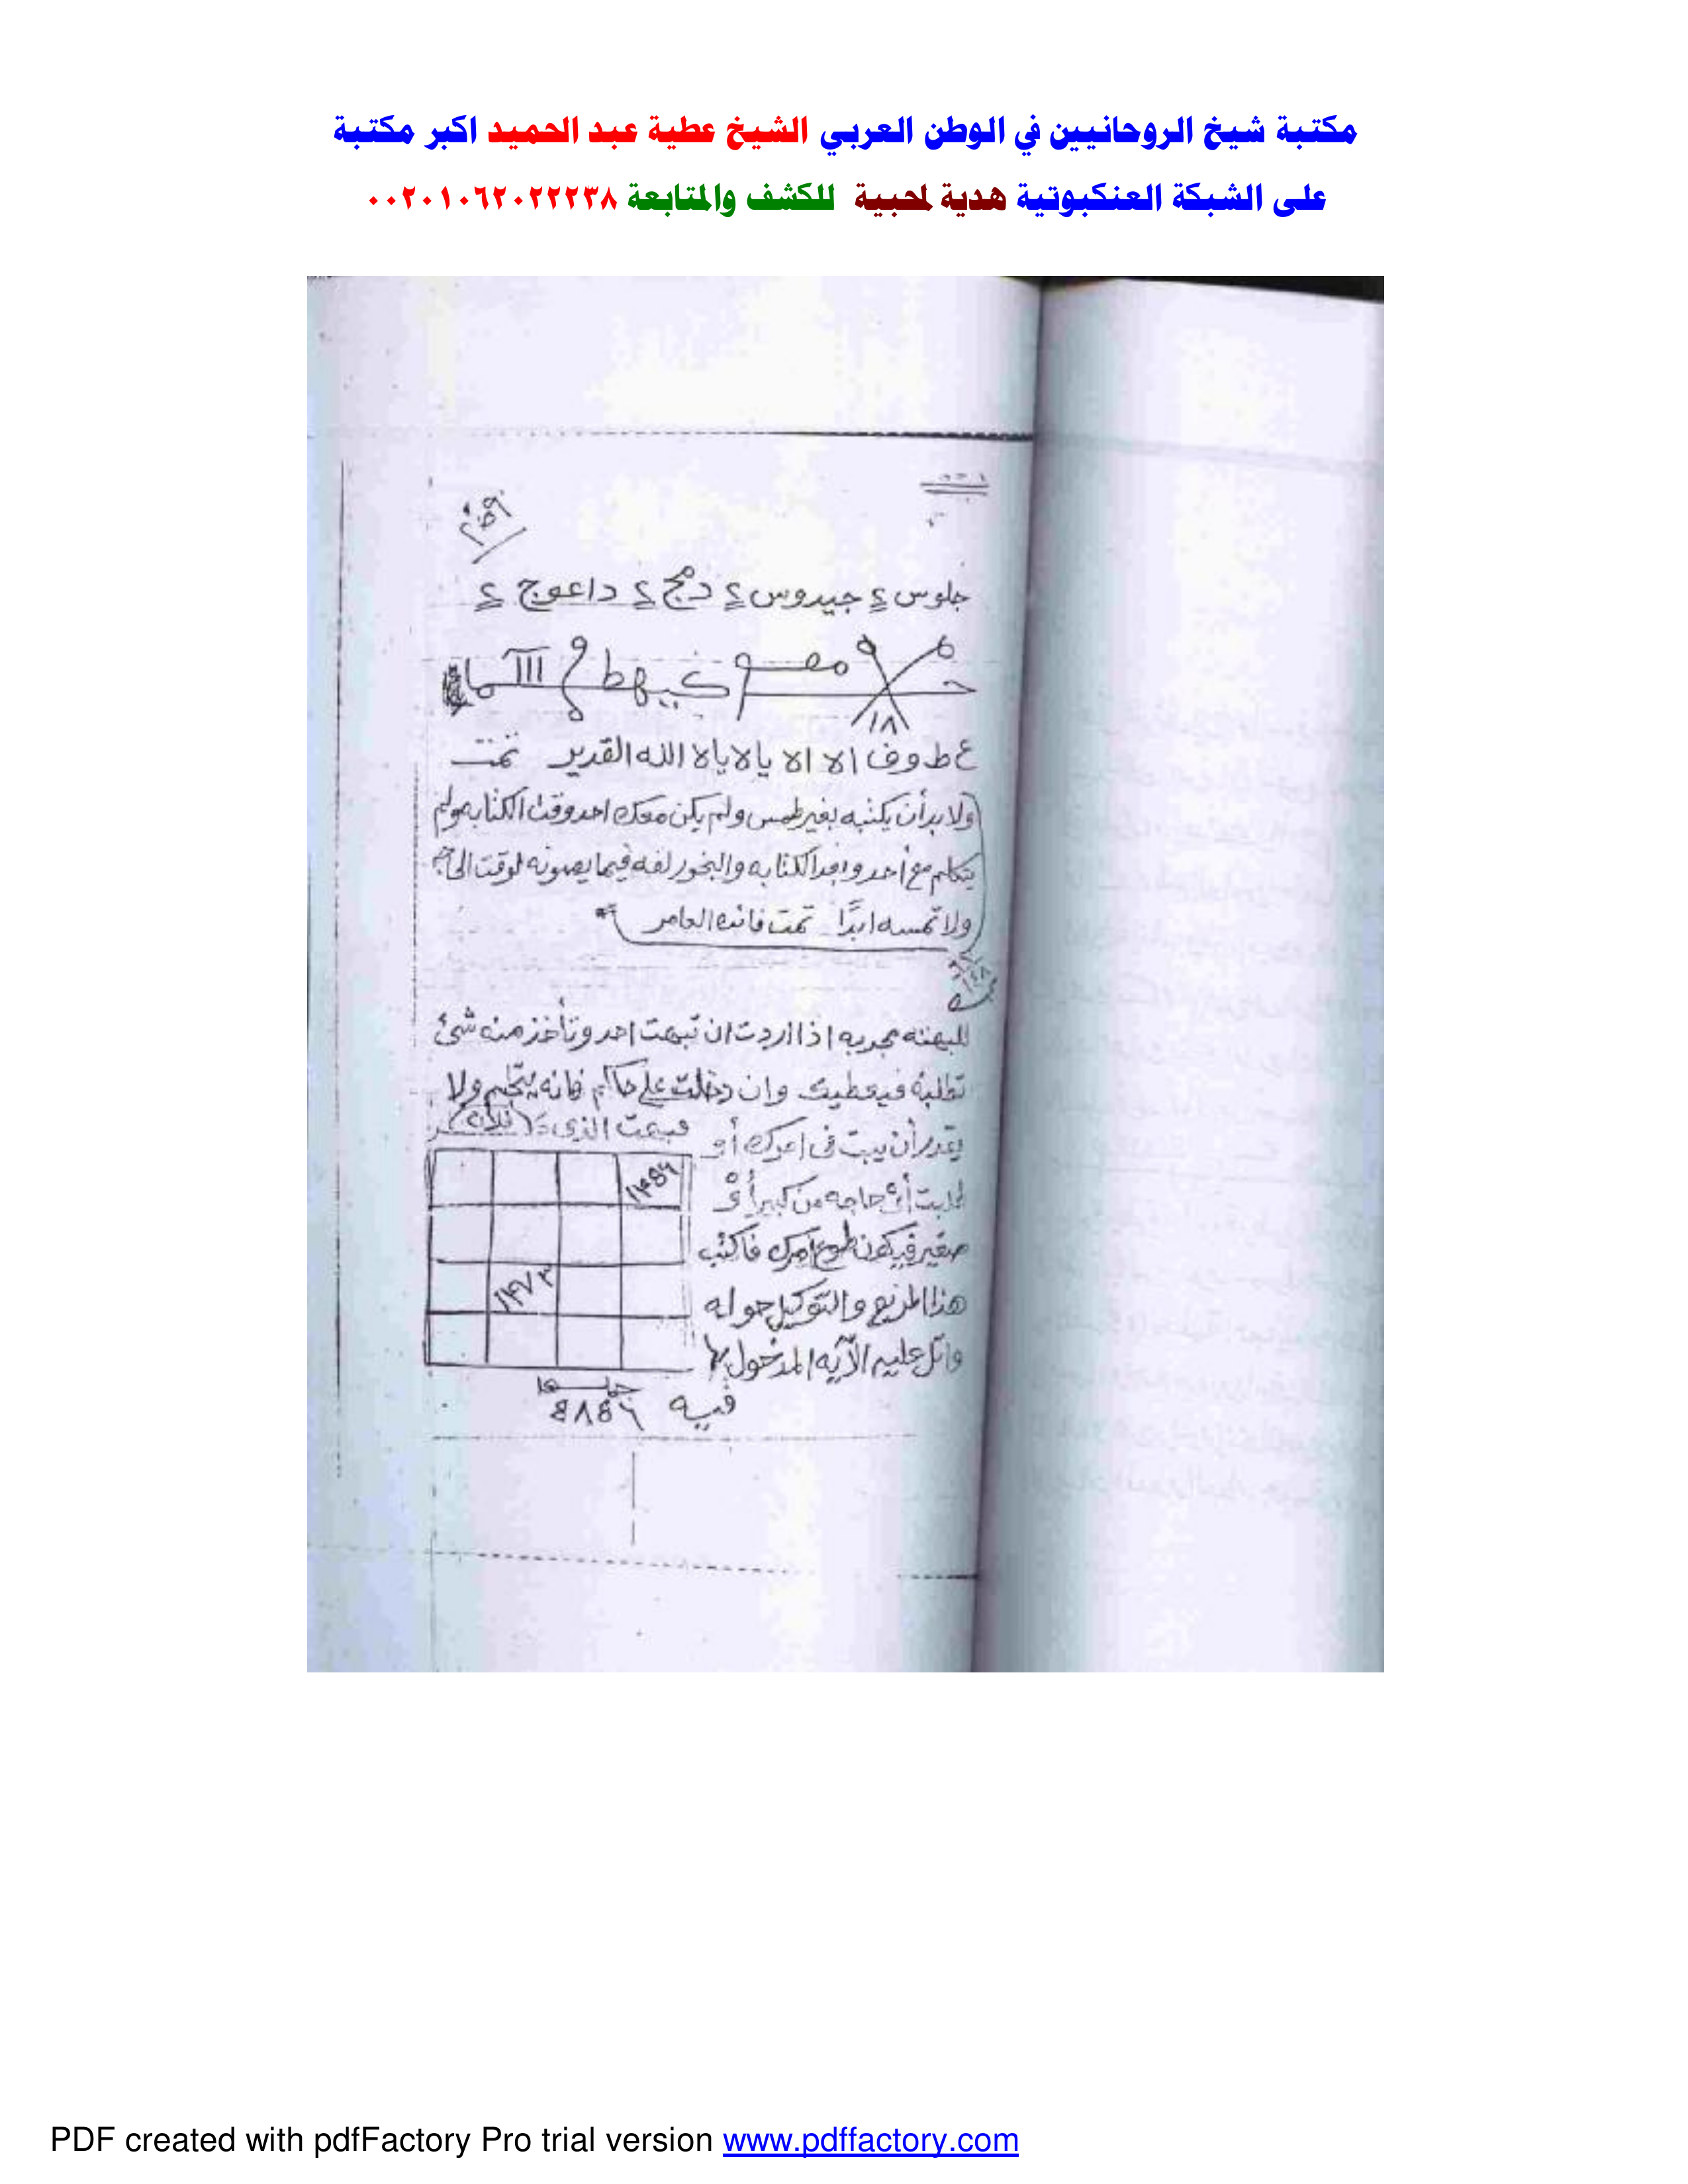 مكتبة شيخ الروحانيين في الوطن العربي الشيخ عطية عبد الحميد اكبر مكتبة
على الشبكة العنكبوتية هدية لمحبية للكشف والمتابعة ٠٠٢٠١٠٦٢٠٢٢٢٣٨
جلوس ٤ جيدوس ٤ دمج ٤ داعوج ٤
كيهطع
١٨
ع ط و ف الله القدير تمت
ولا بد أن يكتبه بغير طمس ولم يكن معك احد وقت الكتابه ولم
يتكلم مع أحد وبعد الكتابه والبخور لفه فيما يصونه لوقت
ولا تمسه ابدًا تمت فائده العامر
للبهته مجربه اذا اردت ان تبهت احد وتأخذ منه شئ
تطلبه فيعطيك وان دخلت على حاكم فانه ولا
يقدر أن يبت فى امرك أو
طلبت أى حاجه من كبير أو
صغير فيكون طوع امرك فاكتب
هذا المربع والتوكيل حوله
واتل عليه الآيه المدخول بها
فيه
فبهت الذى
١٤٧٣
PDF created with pdfFactory Pro trial version www.pdffactory.com